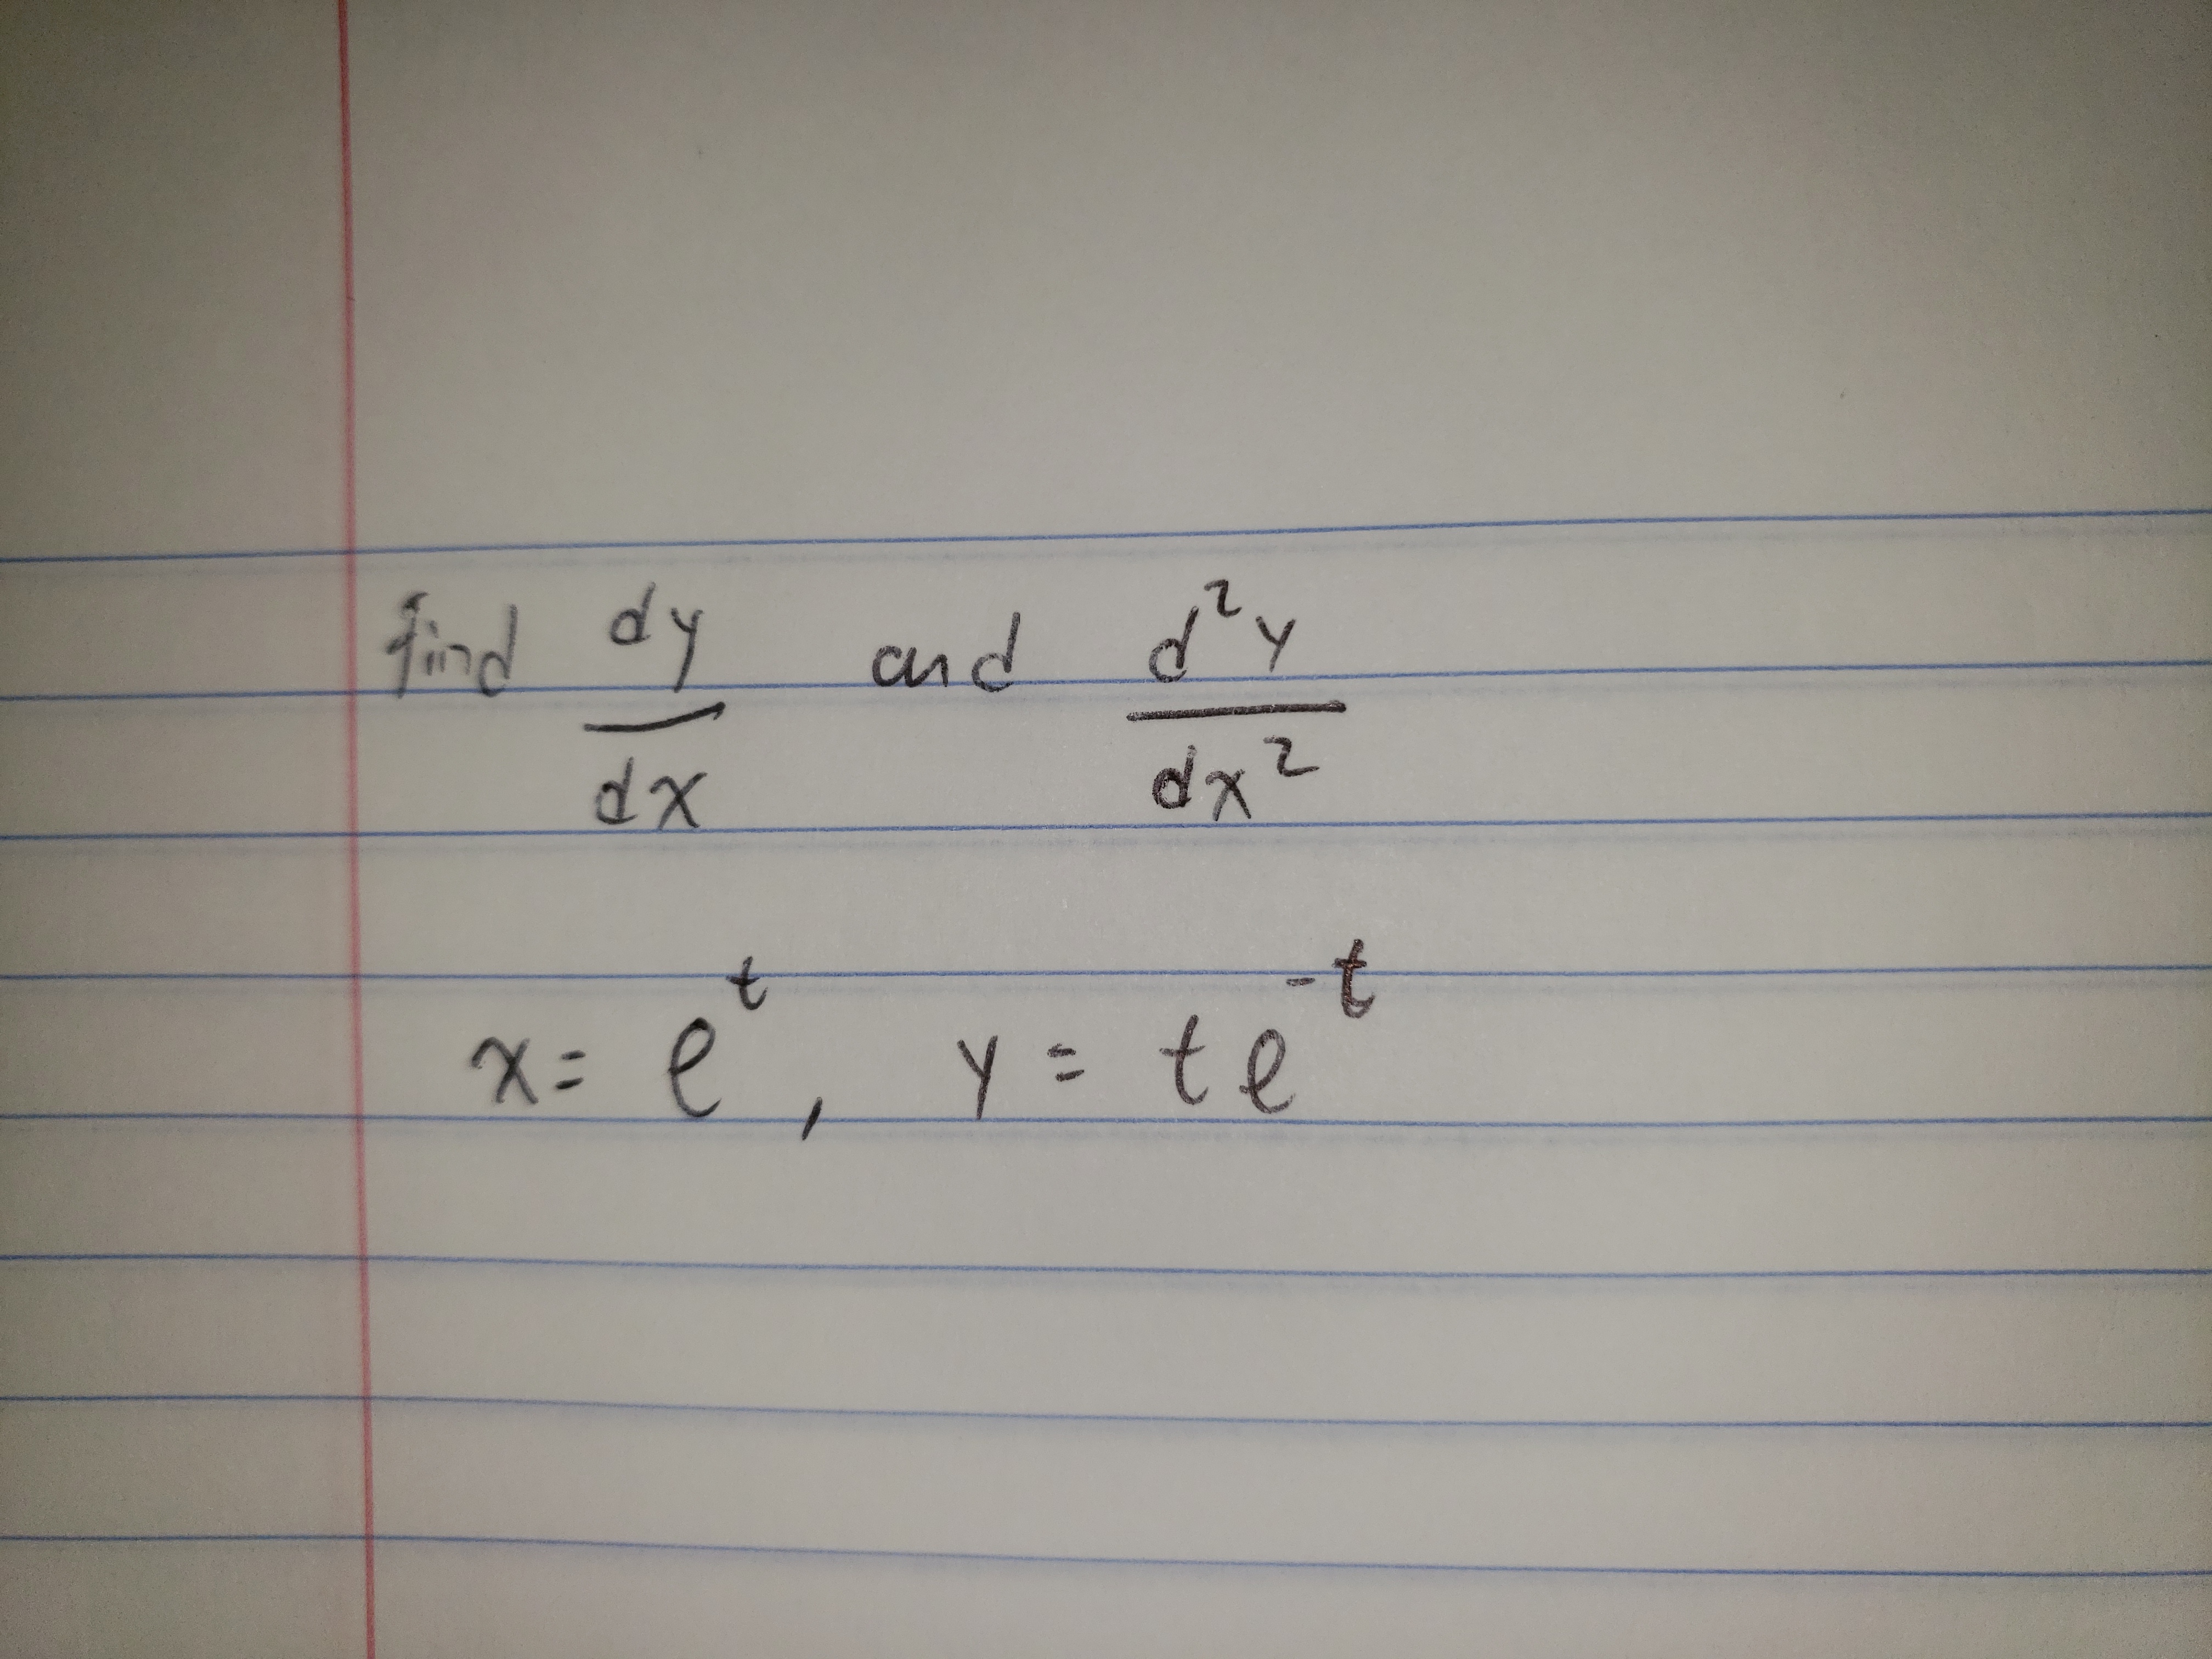 find dy/dx and d²y/dx²
x = e^t, y = te^-t